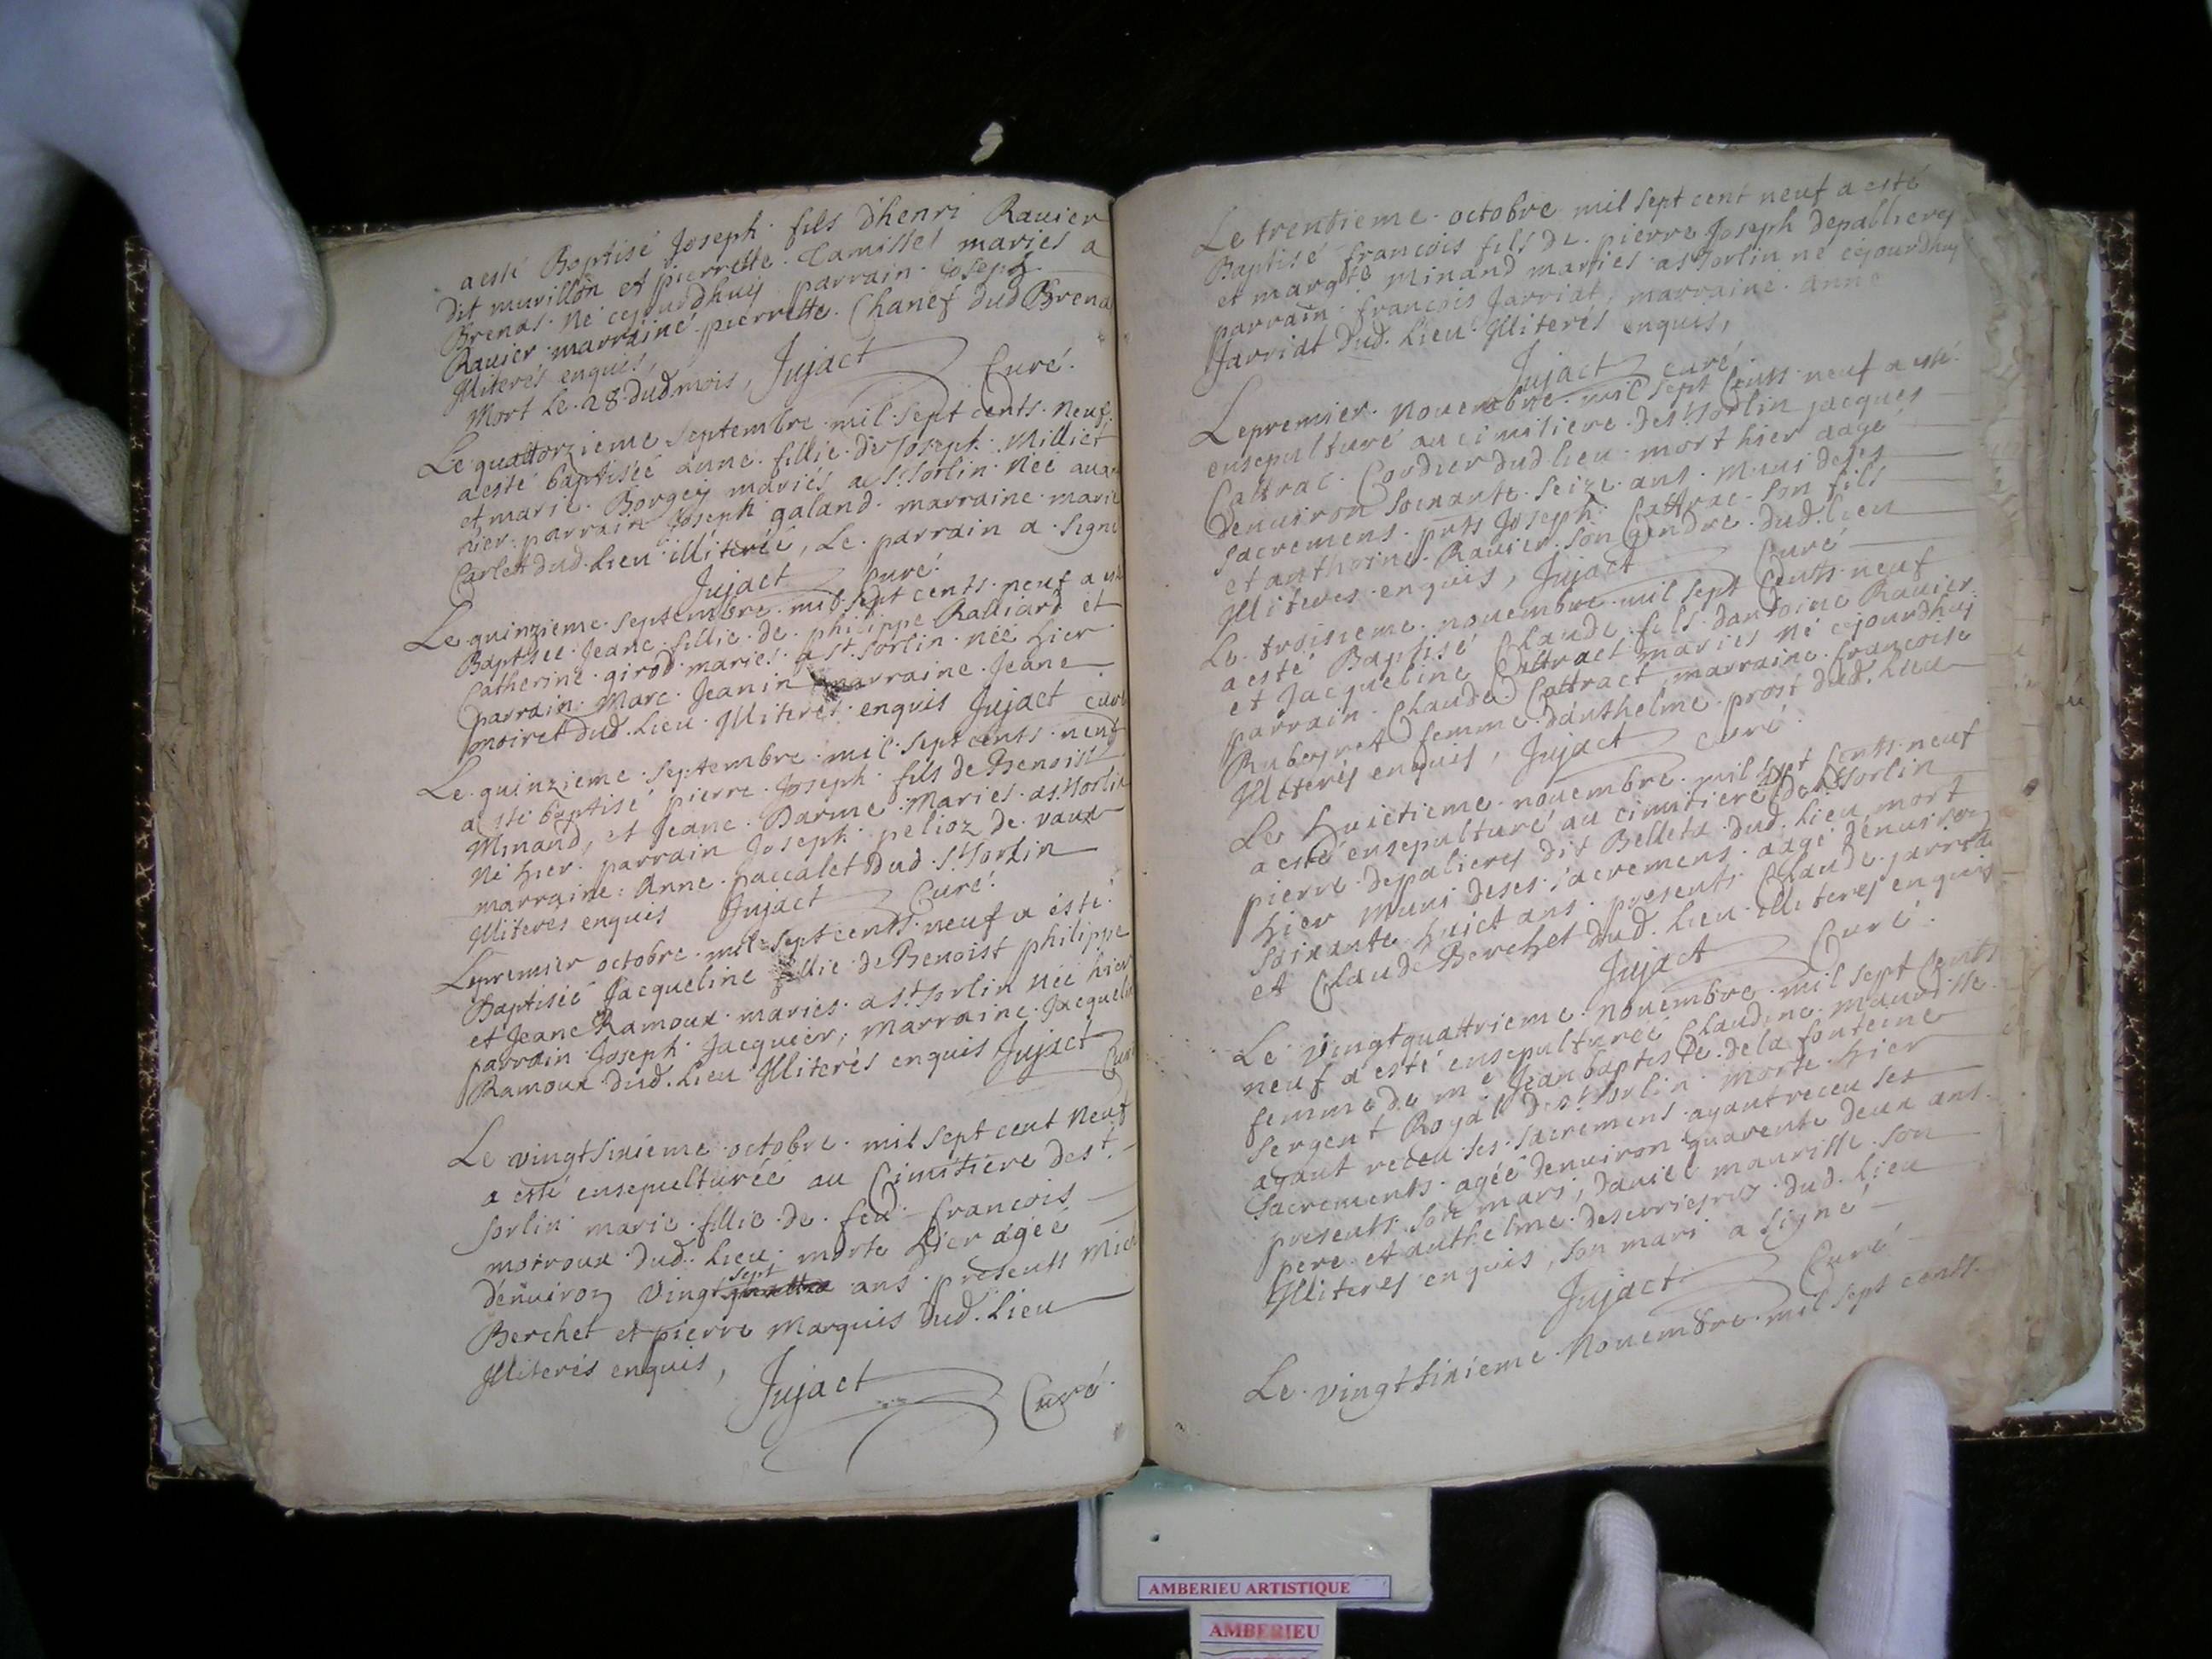 a esté Baptisé Joseph fils d'henri Ravier
dit murillon et pierrette Tamissel mariés a
Brenas né cejourdhuy parrain Joseph
Ravier marraine pierrette Chanef dud Brena
Illiterés enquis,
Mort le 28 dud mois, Jujact Curé.
Le quattorzieme septembre mil sept cents neuf
a esté baptisée anne fillie de Joseph Milliet
et marie Borgey mariés a St Sorlin née auant
hier parrain Joseph galand marraine marie
Carlet dud. lieu illiterée, Le parrain a signé
Jujact Curé.
Le quinzieme septembre mil sept cents neuf a esté
Baptisée Jeane fillie de philippe Ralliard et
Catherine girod mariés a st Sorlin née hier
parrain Marc Jeanin marraine Jeane
moiret dud. lieu Illiterés enquis Jujact curé
Le quinzieme septembre mil sept cents neuf
a esté baptisé pierre Joseph fils de Benoist
Minand, et Jeane Darme Mariés a st Sorlin
né hier parrain Joseph pelioz de vaux
marraine Anne paccalet dud St Sorlin
Illiteres enquis Jujact Curé.
Le premier octobre mil sept cents neuf a esté
Baptisée Jacqueline fillie de Benoist philippe
et Jeane Ramoux mariés a St Sorlin née hier
parrain Joseph Jacquier, marraine Jacqueline
Ramoux dud. lieu Illiterés enquis Jujact Curé
Le vingt sixieme octobre mil sept cent neuf
a esté ensepulturéé au Cimitiere de st
Sorlin marie fillie de feu francois
moiroux dud. lieu morte hier agéé
d'enuiron vingt sept quattre ans presents Mich
Berchet et pierre Marquis dud. lieu
Illiterés enquis,
Jujact Curé
Le trentieme octobre mil sept cent neuf a esté
Baptisé francois fils de pierre Joseph depallieres
et margte Minand mariés a st Sorlin né cejourdhuy
parrain francois Jarriat, marraine anne
Jarriat dud. lieu Illiterés enquis,
Jujact curé
Le premier nouembre mil sept cents neuf a esté
ensepulturé au cimitiere de st Sorlin jacques
Cattrac Cordier dud lieu mort hier aagé
denuiron soixante seize ans muni de ses
sacremens pnts Joseph Cattrac son fils
et anthoine Ravier son gendre dud. lieu
Illiteres enquis, Jujact Curé
Le troisieme nouembre mil sept cents neuf
a esté Baptisé Claude fils dantoine Ravier
et Jacqueline Cattract mariés né cejourdhuy
parrain Claude Cattract marraine francoise
femme d'anthelme prost dud. lieu
Illiterés enquis, Jujact curé
Le huictieme nouembre mil sept cents neuf
a esté ensepulturé au cimitiere de st Sorlin
pierre depalieres dit Belleta dud. lieu mort
hier muni de ses sacremens aagé denuiron
soixante huict ans presents Claude jarriat
et Claude Berchet dud. lieu illiteres enquis
Jujact Curé.
Le vingt quattrieme nouembre mil sept cents
neuf a esté ensepulturée Claudine maurisse
femme de me Jean baptiste de la fonteine
sergent Royal de st Sorlin morte hier
ayant receu ses sacremens ayant receu ses
sacrements agéé denuiron quarente deux ans
presents son mari, Daniel maurisse son
pere et anthelme dud. lieu
Illiteres enquis, son mari a signé
Jujact Curé
Le vingt sixieme Nouembre mil sept cents
AMBERIEU ARTISTIQUE
AMBERIEU